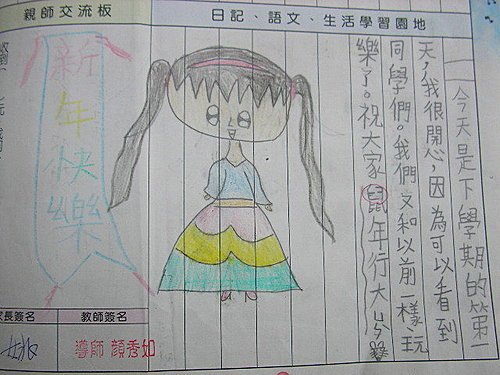 親師交流板
日記、語文、生活學習園地
今天是下學期的第一
天，我很開心，因為可以看到
同學們。我們又和以前一樣玩
樂了。祝大家鼠年行大
新年快樂
長簽名
教師簽名
導師 顏秀如